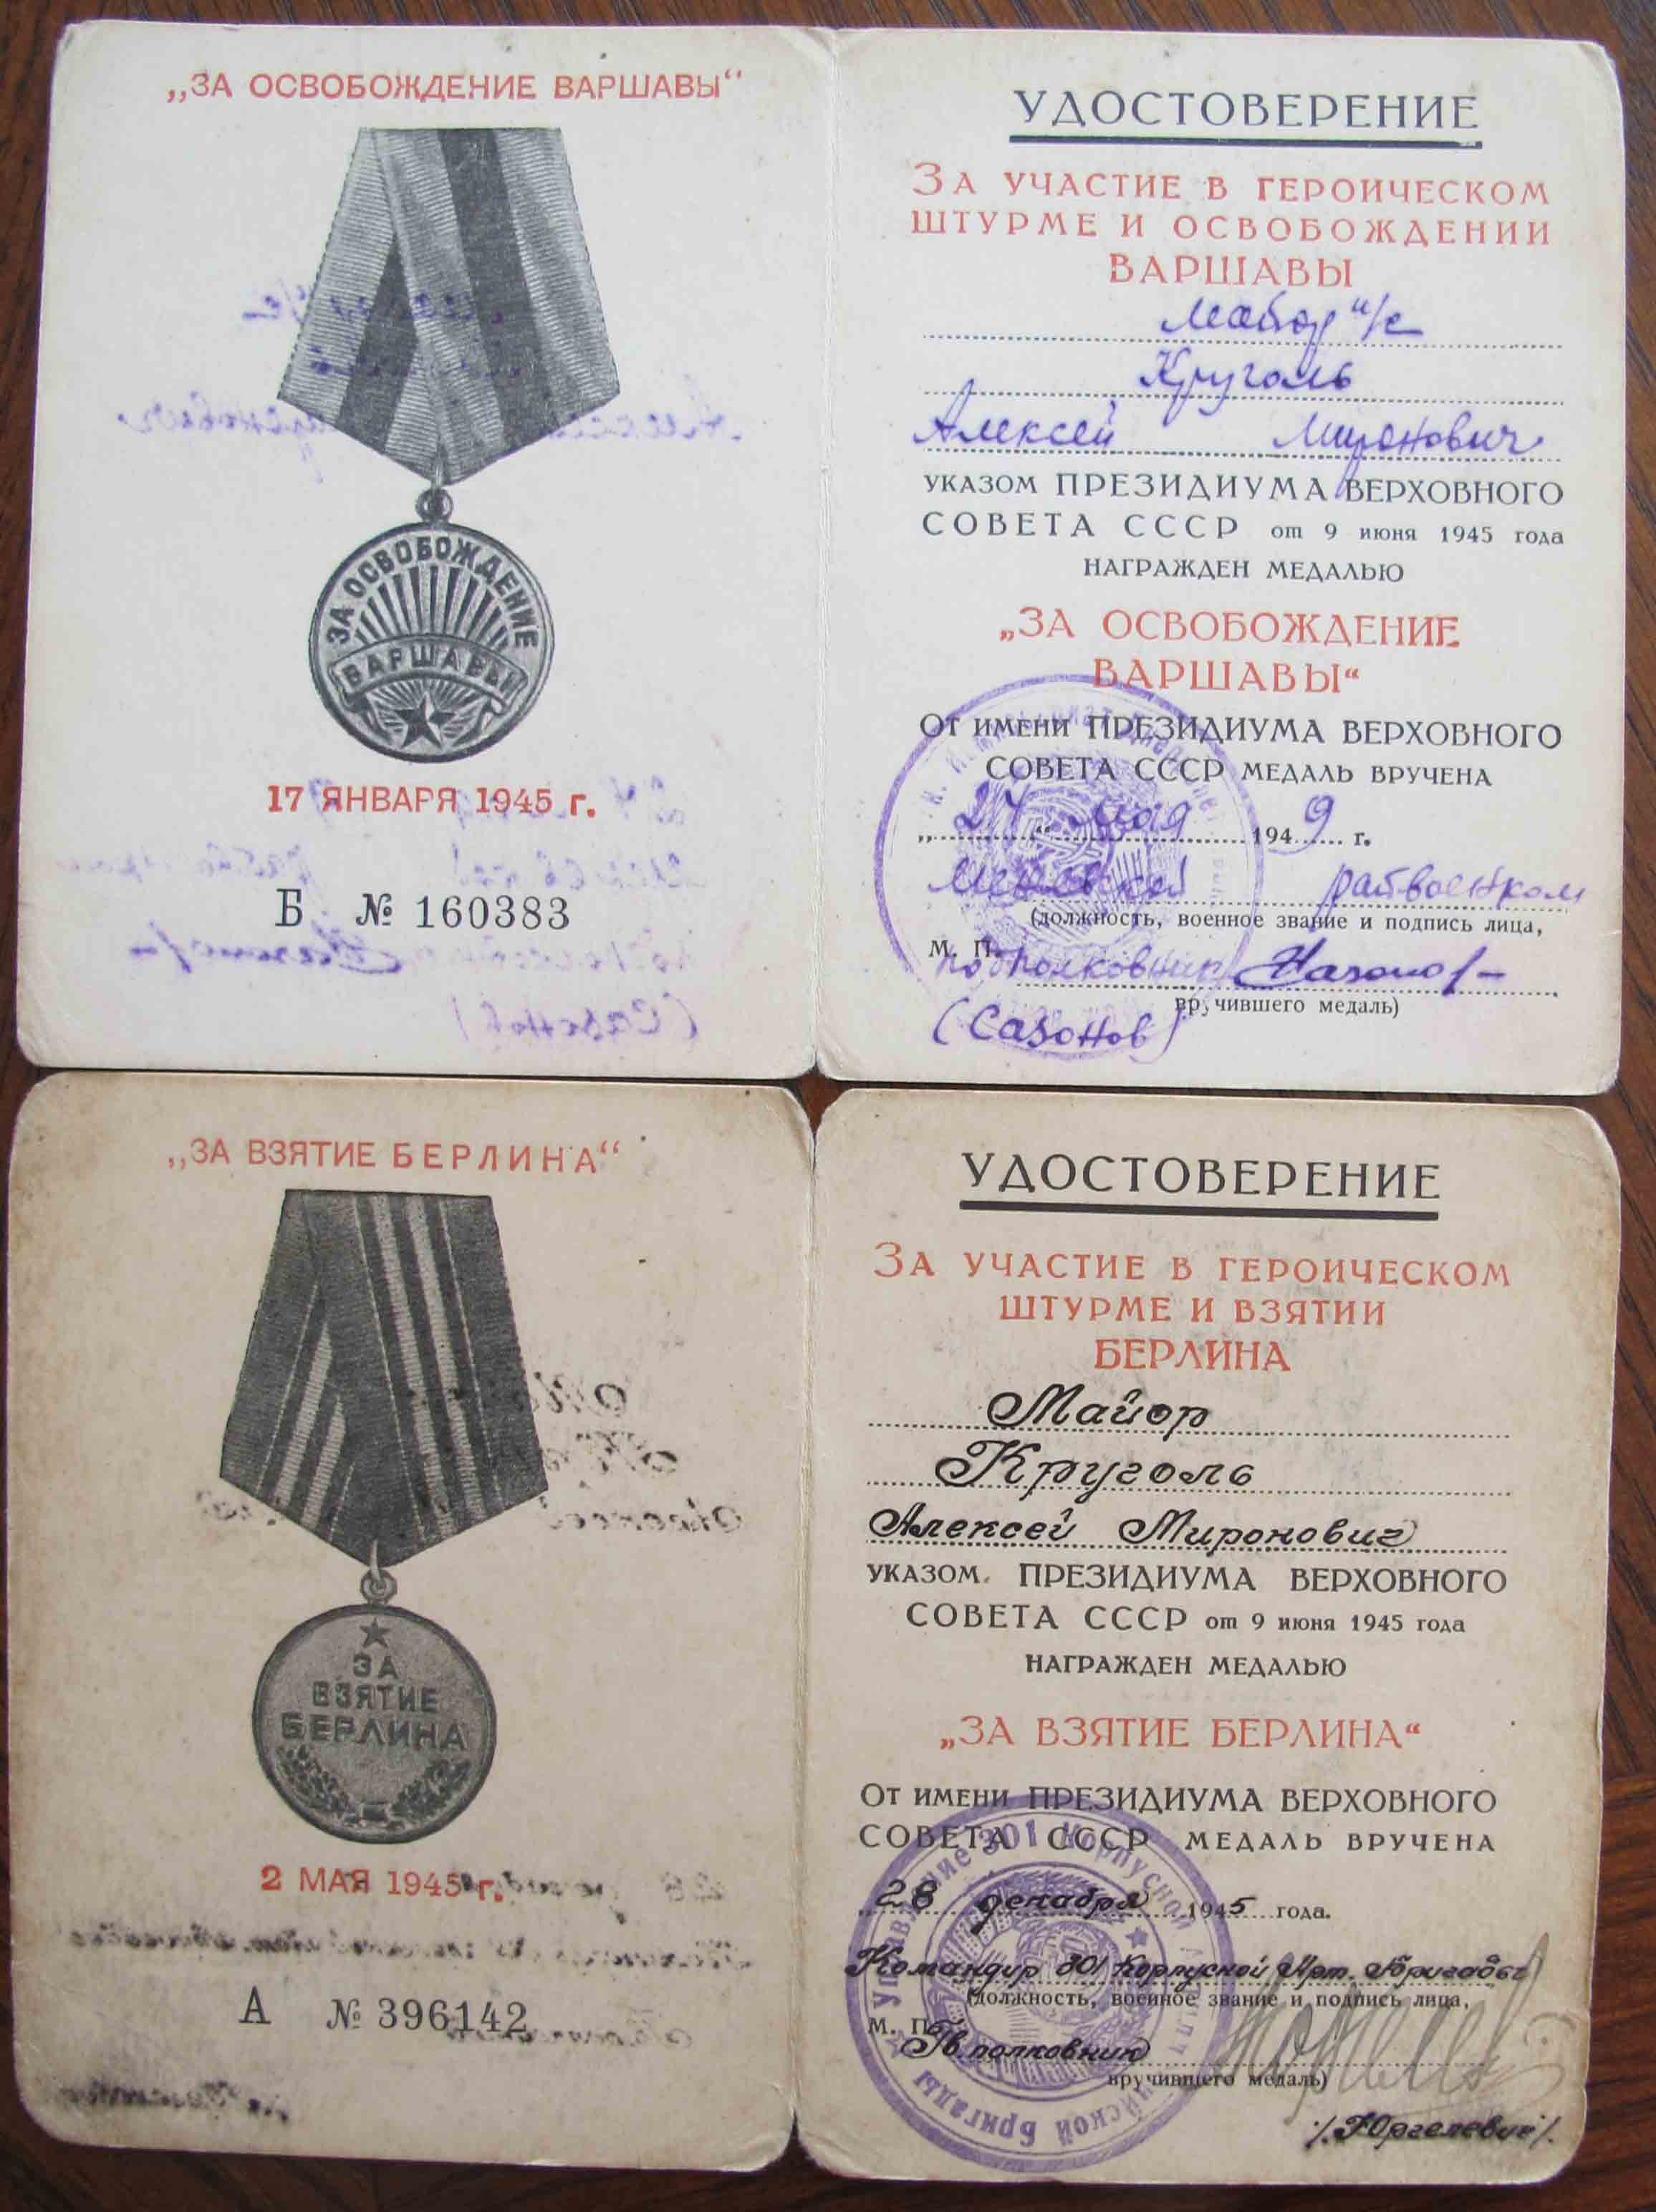 „ЗА ОСВОБОЖДЕНИЕ ВАРШАВЫ“
ЗА ОСВОБОЖДЕНИЕ
ВАРШАВЫ
17 ЯНВАРЯ 1945 г.
Б № 160383
УДОСТОВЕРЕНИЕ
ЗА УЧАСТИЕ В ГЕРОИЧЕСКОМ
ШТУРМЕ И ОСВОБОЖДЕНИИ
ВАРШАВЫ
Майор и/с
Круголь
Алексей Миронович
УКАЗОМ ПРЕЗИДИУМА ВЕРХОВНОГО
СОВЕТА СССР от 9 июня 1945 года
НАГРАЖДЕН МЕДАЛЬЮ
„ЗА ОСВОБОЖДЕНИЕ
ВАРШАВЫ“
ОТ ИМЕНИ ПРЕЗИДИУМА ВЕРХОВНОГО
СОВЕТА СССР МЕДАЛЬ ВРУЧЕНА
„24“ мая 1949 г.
райвоенком
(должность, военное звание и подпись лица,
М. П.
подполковник
вручившего медаль)
(Сазонов)
„ЗА ВЗЯТИЕ БЕРЛИНА“
ЗА
ВЗЯТИЕ
БЕРЛИНА
2 МАЯ 1945 г.
А № 396142
УДОСТОВЕРЕНИЕ
ЗА УЧАСТИЕ В ГЕРОИЧЕСКОМ
ШТУРМЕ И ВЗЯТИИ
БЕРЛИНА
Майор
Круголь
Алексей Миронович
УКАЗОМ ПРЕЗИДИУМА ВЕРХОВНОГО
СОВЕТА СССР от 9 июня 1945 года
НАГРАЖДЕН МЕДАЛЬЮ
„ЗА ВЗЯТИЕ БЕРЛИНА“
ОТ ИМЕНИ ПРЕЗИДИУМА ВЕРХОВНОГО
СОВЕТА СССР МЕДАЛЬ ВРУЧЕНА
28 декабря 1945 года.
Командир 301 Корпусной Арт. Бригады
(должность, военное звание и подпись лица,
М. П.
Гв. полковник
вручившего медаль)
/Юргелевич/.
Управление 301 Корпусной Бригады